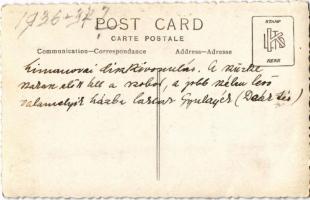 1936-37?
POST CARD
CARTE POSTALE
Communication–Correspondance
Address–Adresse
STAMP
HERE
Limanovai díszkivonulás. A szürke
előtt áll a szobor, a jobb szélen levő
valamelyik házba Gyuláék